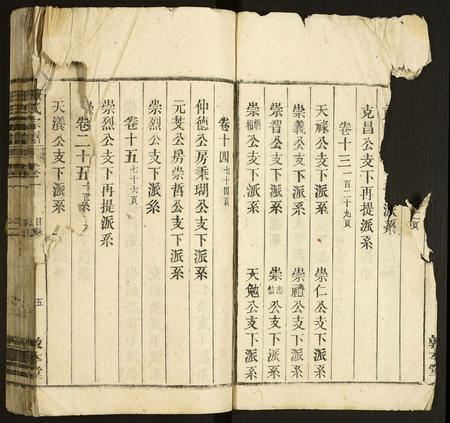 公支下派系
克昌公支下再提派系
卷十三一百二十九頁
天祿公支下派系 崇仁公支下派系
崇義公支下派系 崇禮公支下派系
崇智公支下派系 崇忠信公支下派系
崇公支下派系 天勉公支下派系
敦本堂
卷十四七十四頁
仲德公房秉瑚公支下派系
元芠公房崇哲公支下派系
崇烈公支下派系
卷十五七十六頁
崇烈公支下再提派系
卷二十五頁
天瀁公支下派系
目錄
五
敦本堂